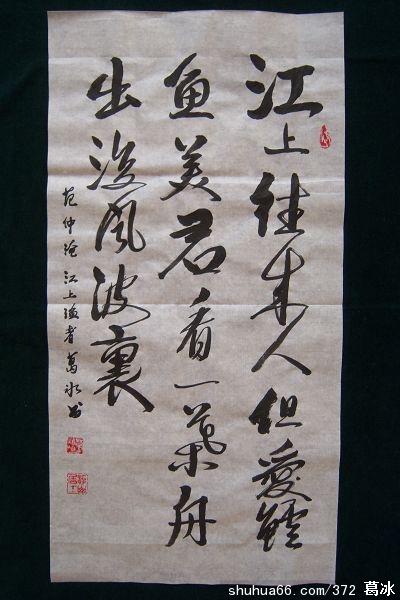 江上往来人但愛鱸
鱼美君看一葉舟
出没风波裏
范仲淹 江上渔者 葛冰书
shuhua66.com/372 葛冰